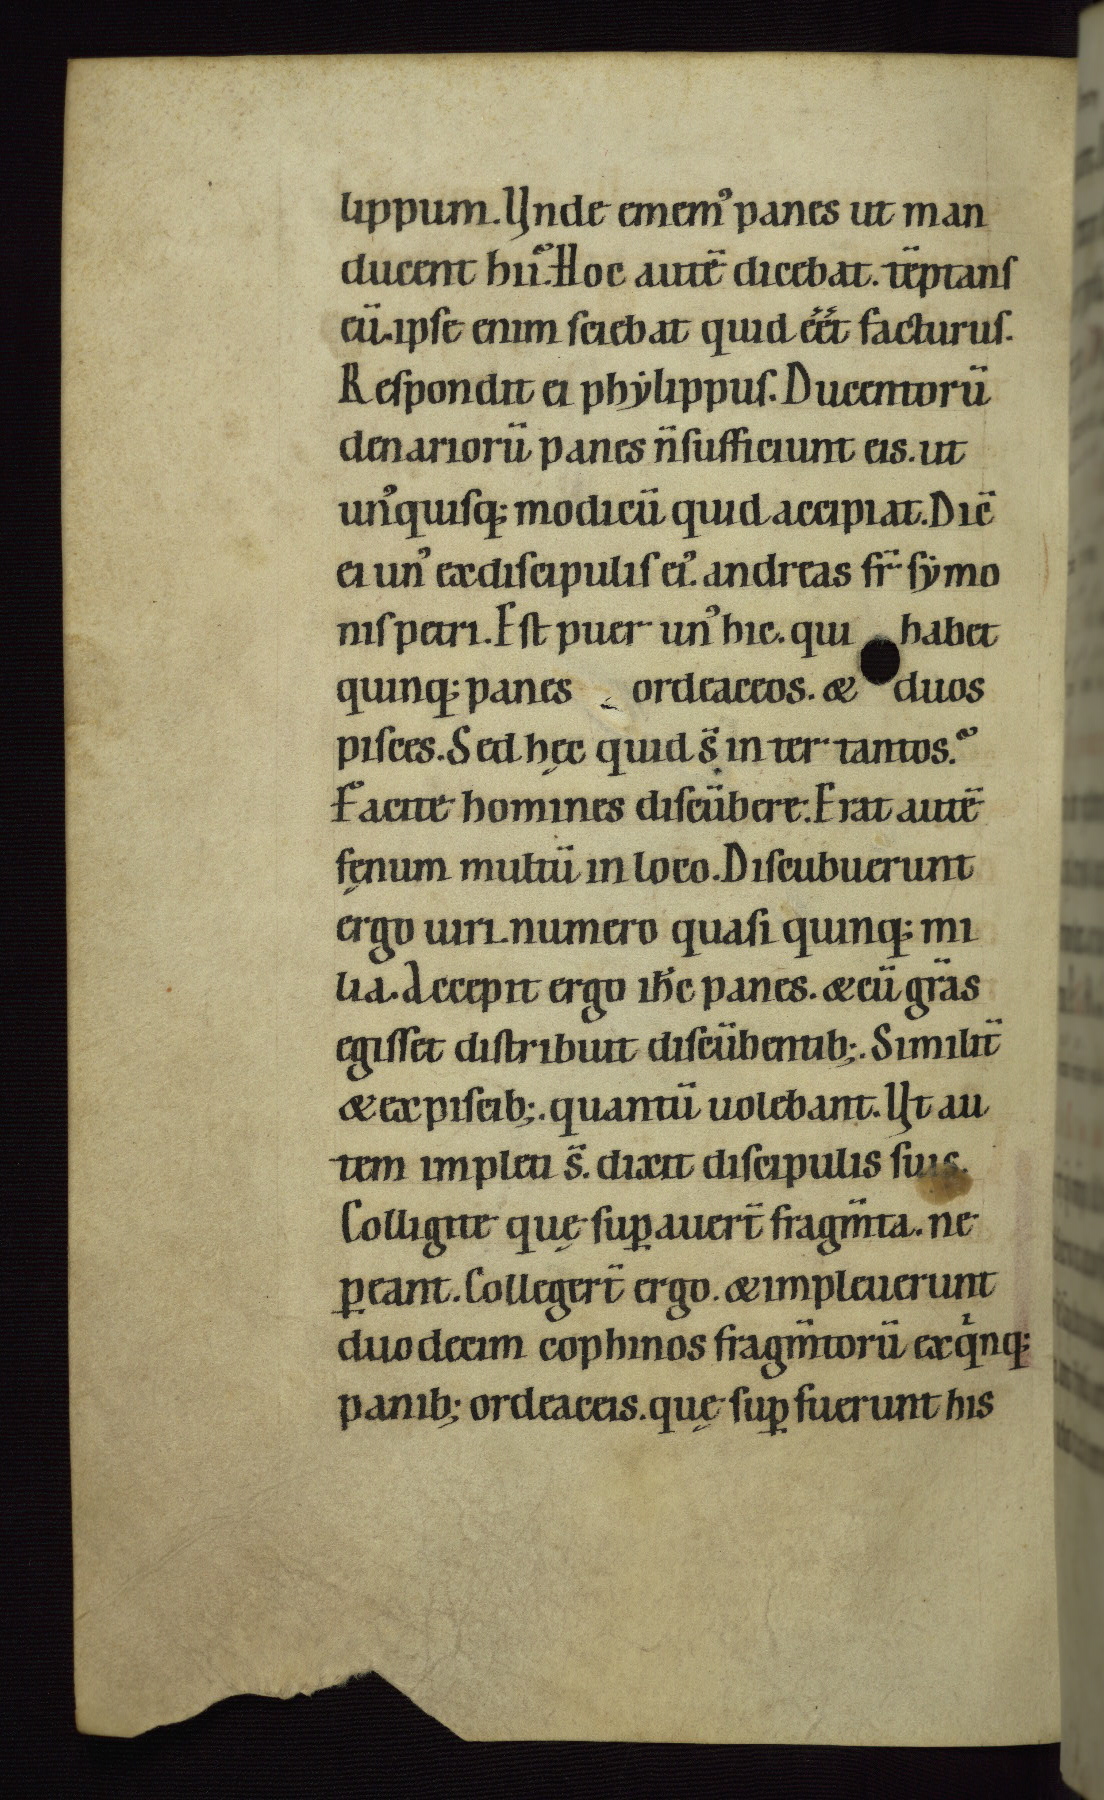 lippum. Vnde ememꝰ panes ut man
ducent hii? Hoc autē dicebat. tēptanſ
eū. ipſe enim ſciebat quid eēt facturuſ.
Reſpondit ei phẏlippuſ. Ducentorū
denariorū panes n̄ ſufficiunt eis. ut
unꝰquiſq; modicū quid accipiat. Dic̄
ei unꝰ ex diſcipuliſ eiꝰ. andreas fr̄ ſẏmo
niſ petri. Eſt puer unꝰ hic. qui habet
quinq; panes ordeaceos. & duos
piſces. Sed hęc quid s̄ inter tantos?
Facite homines diſcūbere. Erat autē
fęnum multū in loco. Diſcubuerunt
ergo uiri. numero quaſi quinq; mi
lia. Accepit ergo ih̄c panes. & cū gr̄as
egiſſet diſtribuit diſcūbentib;. Similit̄
& ex piſcib;. quantū uolebant. Vt au
tem impleti s̄. dixit diſcipulis ſuis.
Colligite quę ſuꝑauert̄ fragm̄ta. ne
ꝑeant. Collegert̄ ergo. & impleuerunt
duodecim cophinos fragm̄torū ex qͥnq;
panib; ordeaceis. quę ſuꝑfuerunt his